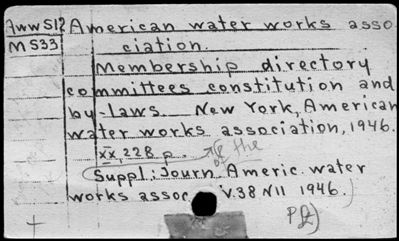 AwwS12 American water works asso
MS33 ciation.
Membership directory
committees constitution and
by-laws. New York, American
water works association, 1946.
xx, 228 p. of the
Suppl.: Journ. Americ. water
works assoc V.38 N11 1946.)